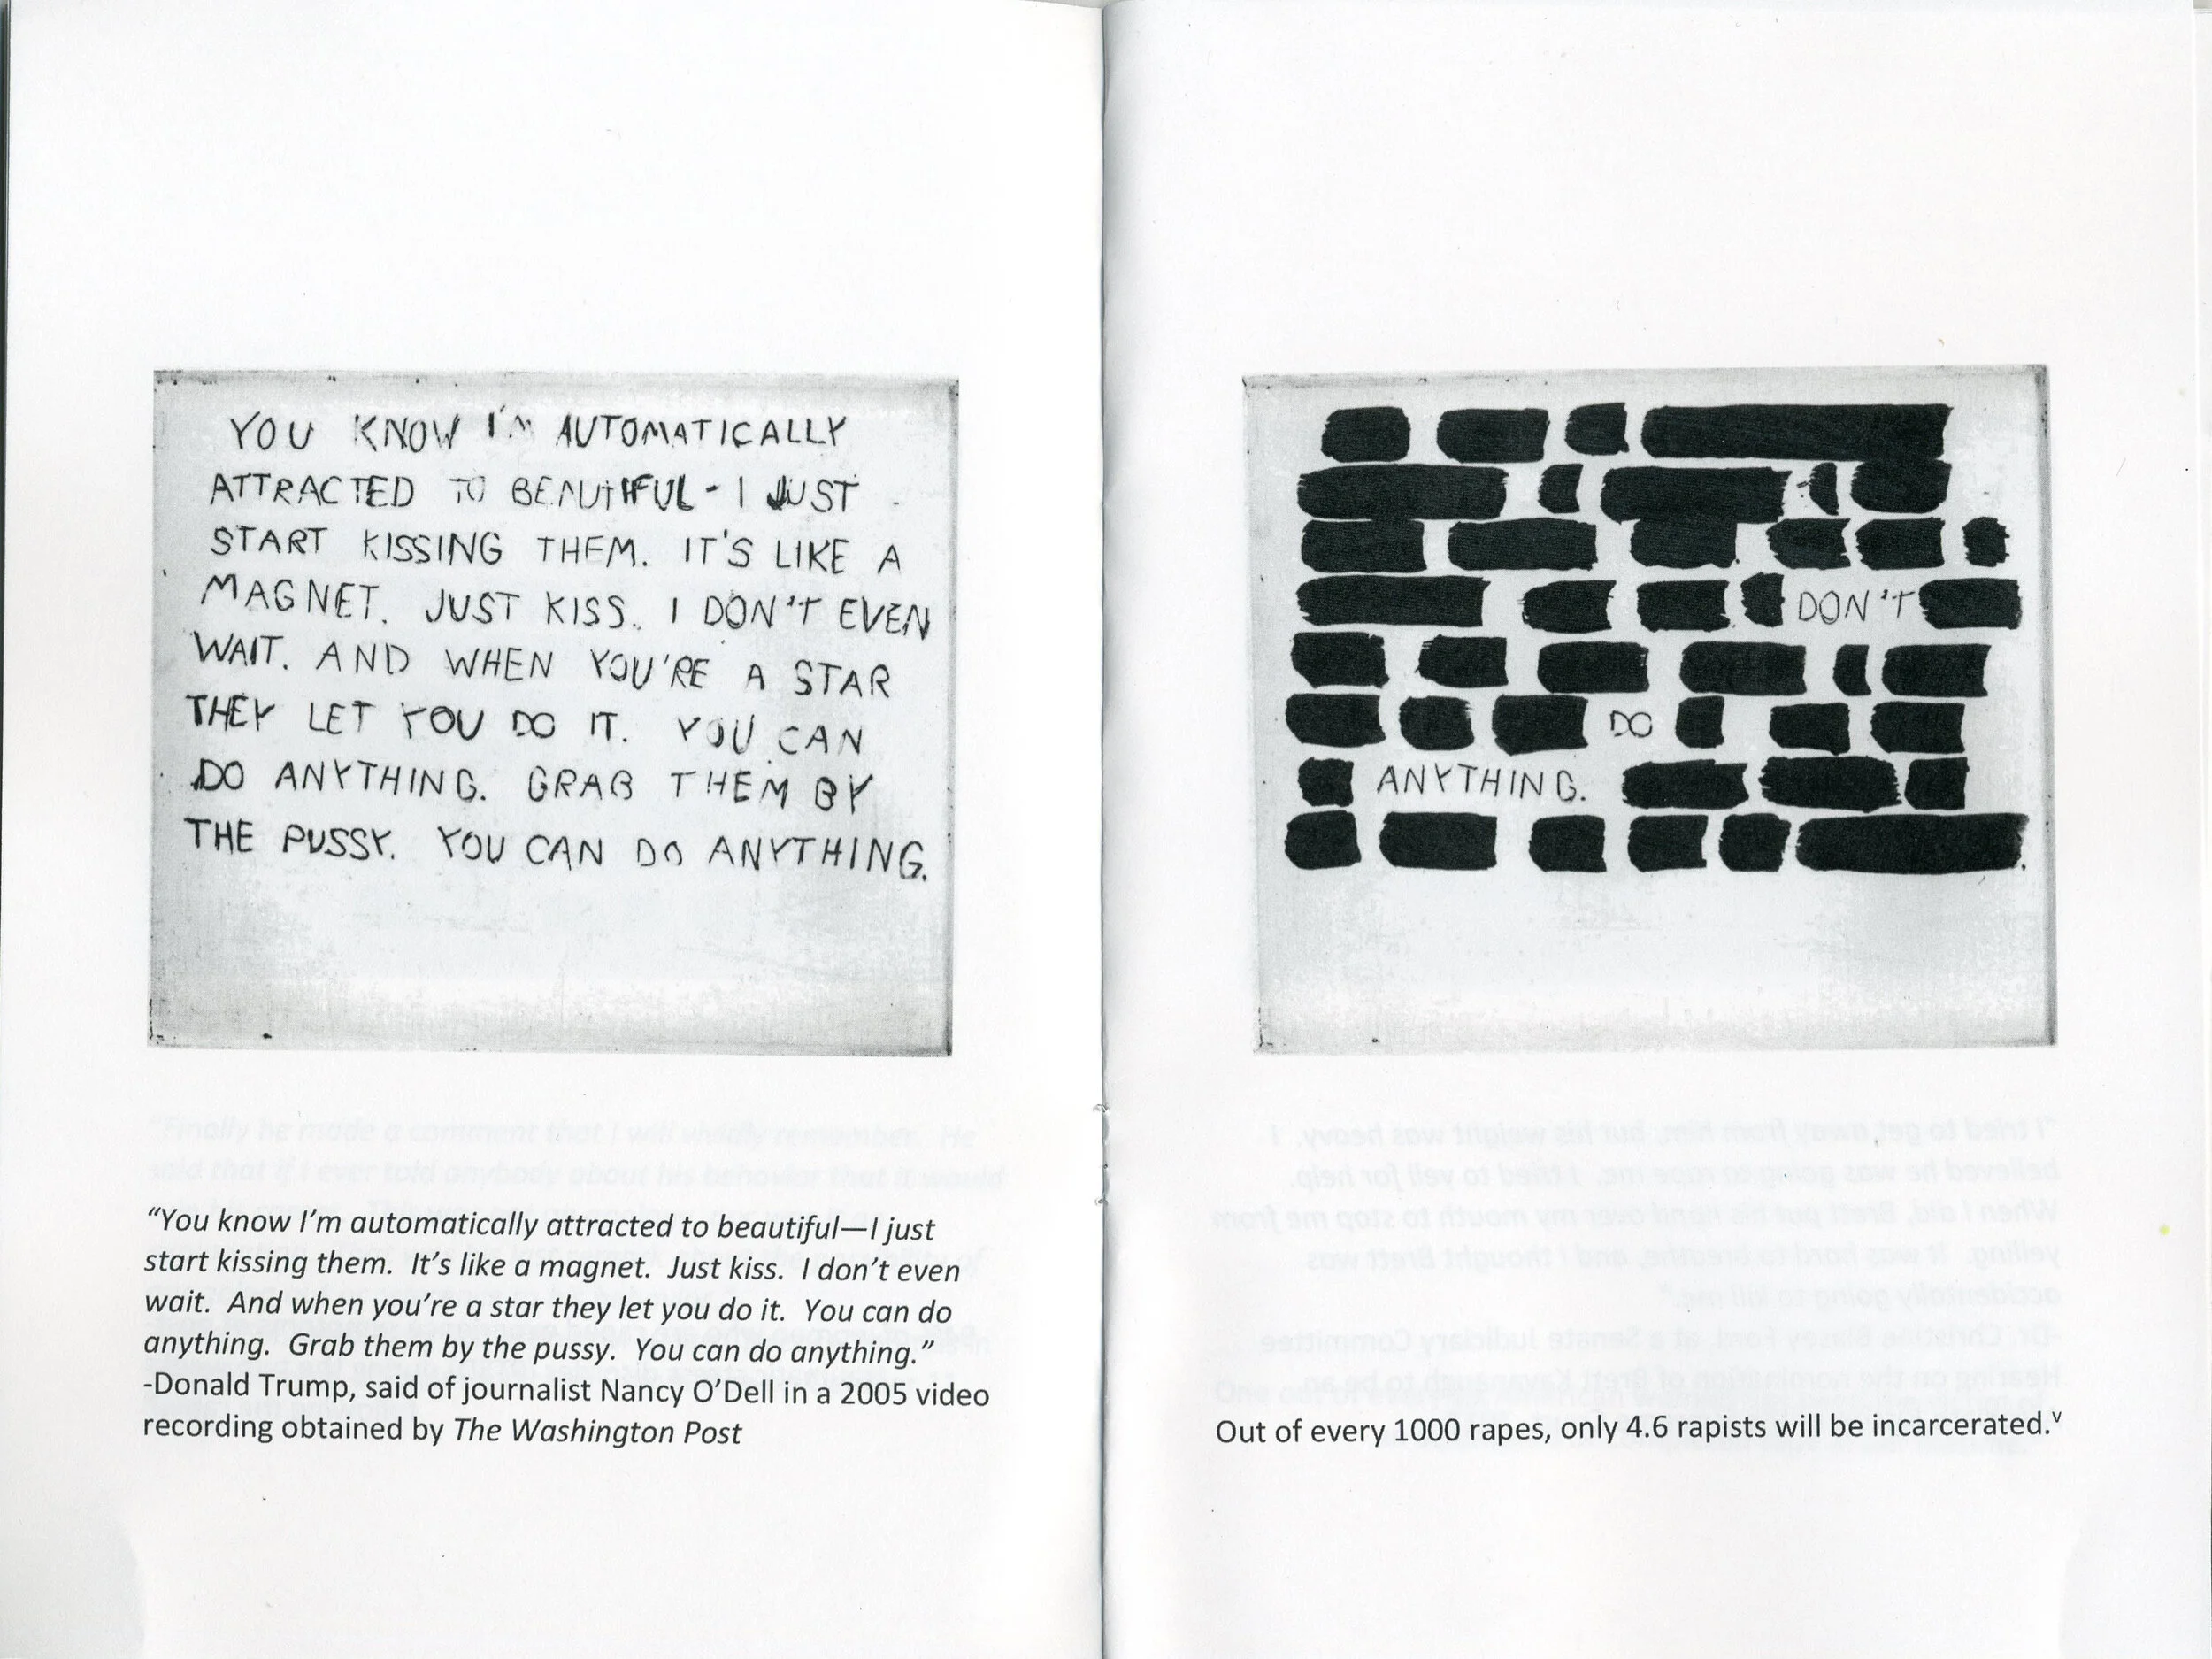 YOU KNOW I'M AUTOMATICALLY
ATTRACTED TO BEAUTIFUL - I JUST
START KISSING THEM. IT'S LIKE A
MAGNET. JUST KISS. I DON'T EVEN
WAIT. AND WHEN YOU'RE A STAR
THEY LET YOU DO IT. YOU CAN
DO ANYTHING. GRAB THEM BY
THE PUSSY. YOU CAN DO ANYTHING.
“You know I’m automatically attracted to beautiful—I just
start kissing them. It’s like a magnet. Just kiss. I don’t even
wait. And when you’re a star they let you do it. You can do
anything. Grab them by the pussy. You can do anything.”
-Donald Trump, said of journalist Nancy O’Dell in a 2005 video
recording obtained by The Washington Post
DON'T
DO
ANYTHING.
Out of every 1000 rapes, only 4.6 rapists will be incarcerated.ᵛ